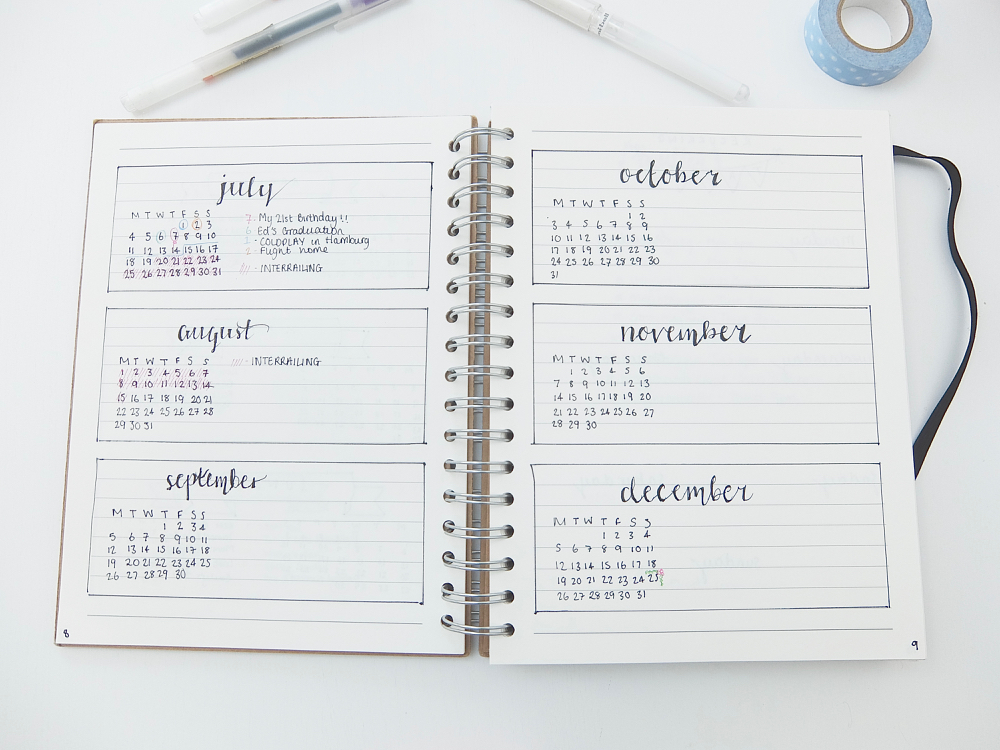 july
M T W T F S S
1 2 3
4 5 6 7 8 9 10
11 12 13 14 15 16 17
18 19 20 21 22 23 24
25 26 27 28 29 30 31
7 - My 21st Birthday!!
6 Ed's Graduation
1 - COLDPLAY in Hamburg
2 - Flight home
//// - INTERRAILING
august
M T W T F S S
1 2 3 4 5 6 7
8 9 10 11 12 13 14
15 16 17 18 19 20 21
22 23 24 25 26 27 28
29 30 31
//// - INTERRAILING
september
M T W T F S S
1 2 3 4
5 6 7 8 9 10 11
12 13 14 15 16 17 18
19 20 21 22 23 24 25
26 27 28 29 30
8
october
M T W T F S S
1 2
3 4 5 6 7 8 9
10 11 12 13 14 15 16
17 18 19 20 21 22 23
24 25 26 27 28 29 30
31
november
M T W T F S S
1 2 3 4 5 6
7 8 9 10 11 12 13
14 15 16 17 18 19 20
21 22 23 24 25 26 27
28 29 30
december
M T W T F S S
1 2 3 4
5 6 7 8 9 10 11
12 13 14 15 16 17 18
19 20 21 22 23 24 25
26 27 28 29 30 31
9